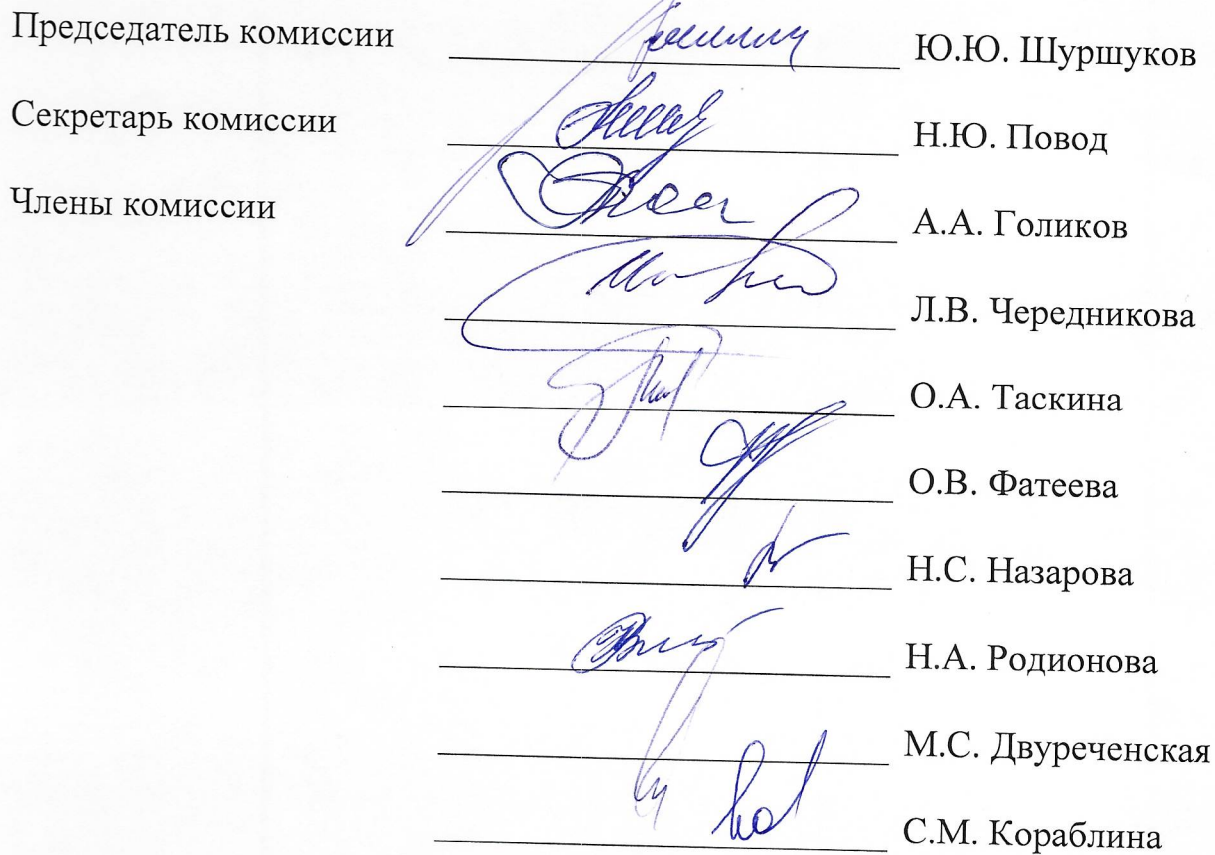 Председатель комиссии Ю.Ю. Шуршуков
Секретарь комиссии Н.Ю. Повод
Члены комиссии А.А. Голиков
Л.В. Чередникова
О.А. Таскина
О.В. Фатеева
Н.С. Назарова
Н.А. Родионова
М.С. Двуреченская
С.М. Кораблина